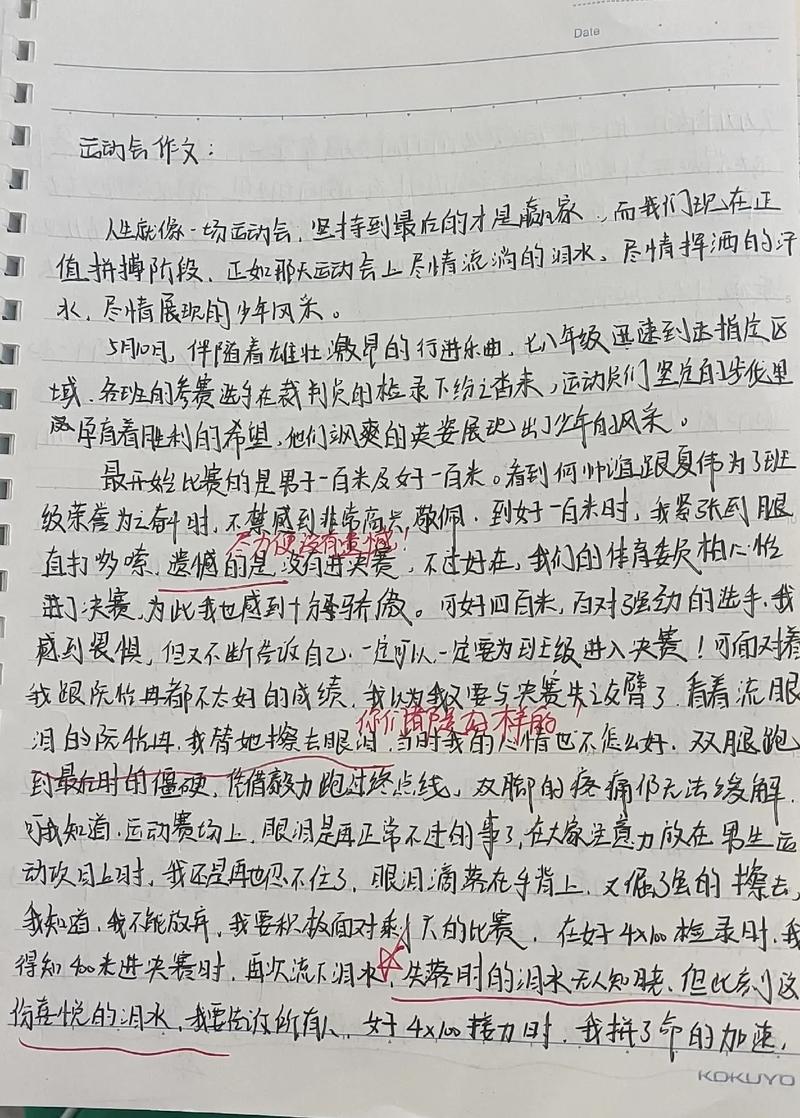 Date
运动会作文:
人生就像一场运动会,坚持到最后的才是赢家,而我们现在正
值拼搏阶段,正如那天运动会上尽情流淌的泪水、尽情挥洒的汗
水、尽情展现的少年风采。
5月10日,伴随着雄壮激昂的行进乐曲,七八年级迅速到达指定区
域,各班的参赛选手在裁判员的检录下纷沓而来,运动员们坚定的步伐里
孕育着胜利的希望,他们飒爽的英姿展现出了少年的风采。
最开始比赛的是男子一百米及女子一百米。看到何帅谊跟夏伟为了班
级荣誉为之奋斗时,不禁感到非常高兴、敬佩,到女子一百米时,我紧张到腿
尽力便没有遗憾!
直打哆嗦,遗憾的是没有进决赛,不过好在,我们的体育委员柏心怡
进了决赛,为此我也感到十分骄傲。可女子四百米,面对强劲的选手,我
感到畏惧,但又不断告诉自己,一定可以,一定要为班级进入决赛!可面对着
我跟阮怡冉都不太好的成绩,我以为我又要与决赛失之交臂了,看着流眼
你们都是好样的!
泪的阮怡冉,我替她擦去眼泪,当时我的心情也不怎么好,双腿跑
到最后时的僵硬,凭借毅力跑过终点线,双脚的疼痛仍无法缓解,
可我知道,运动赛场上,眼泪是再正常不过的事了,在大家注意力放在男生运
动项目上时,我还是再也忍不住了,眼泪滴落在手背上,又倔强的擦去,
我知道,我不能放弃,我要积极面对剩下的比赛,在女子4×100检录时,我
得知400米进决赛时,再次流下泪水,失落时的泪水无人知晓,但此刻这
份喜悦的泪水,我要告诉所有人,女子4×100接力时,我拼了命的加速,
KOKUYO